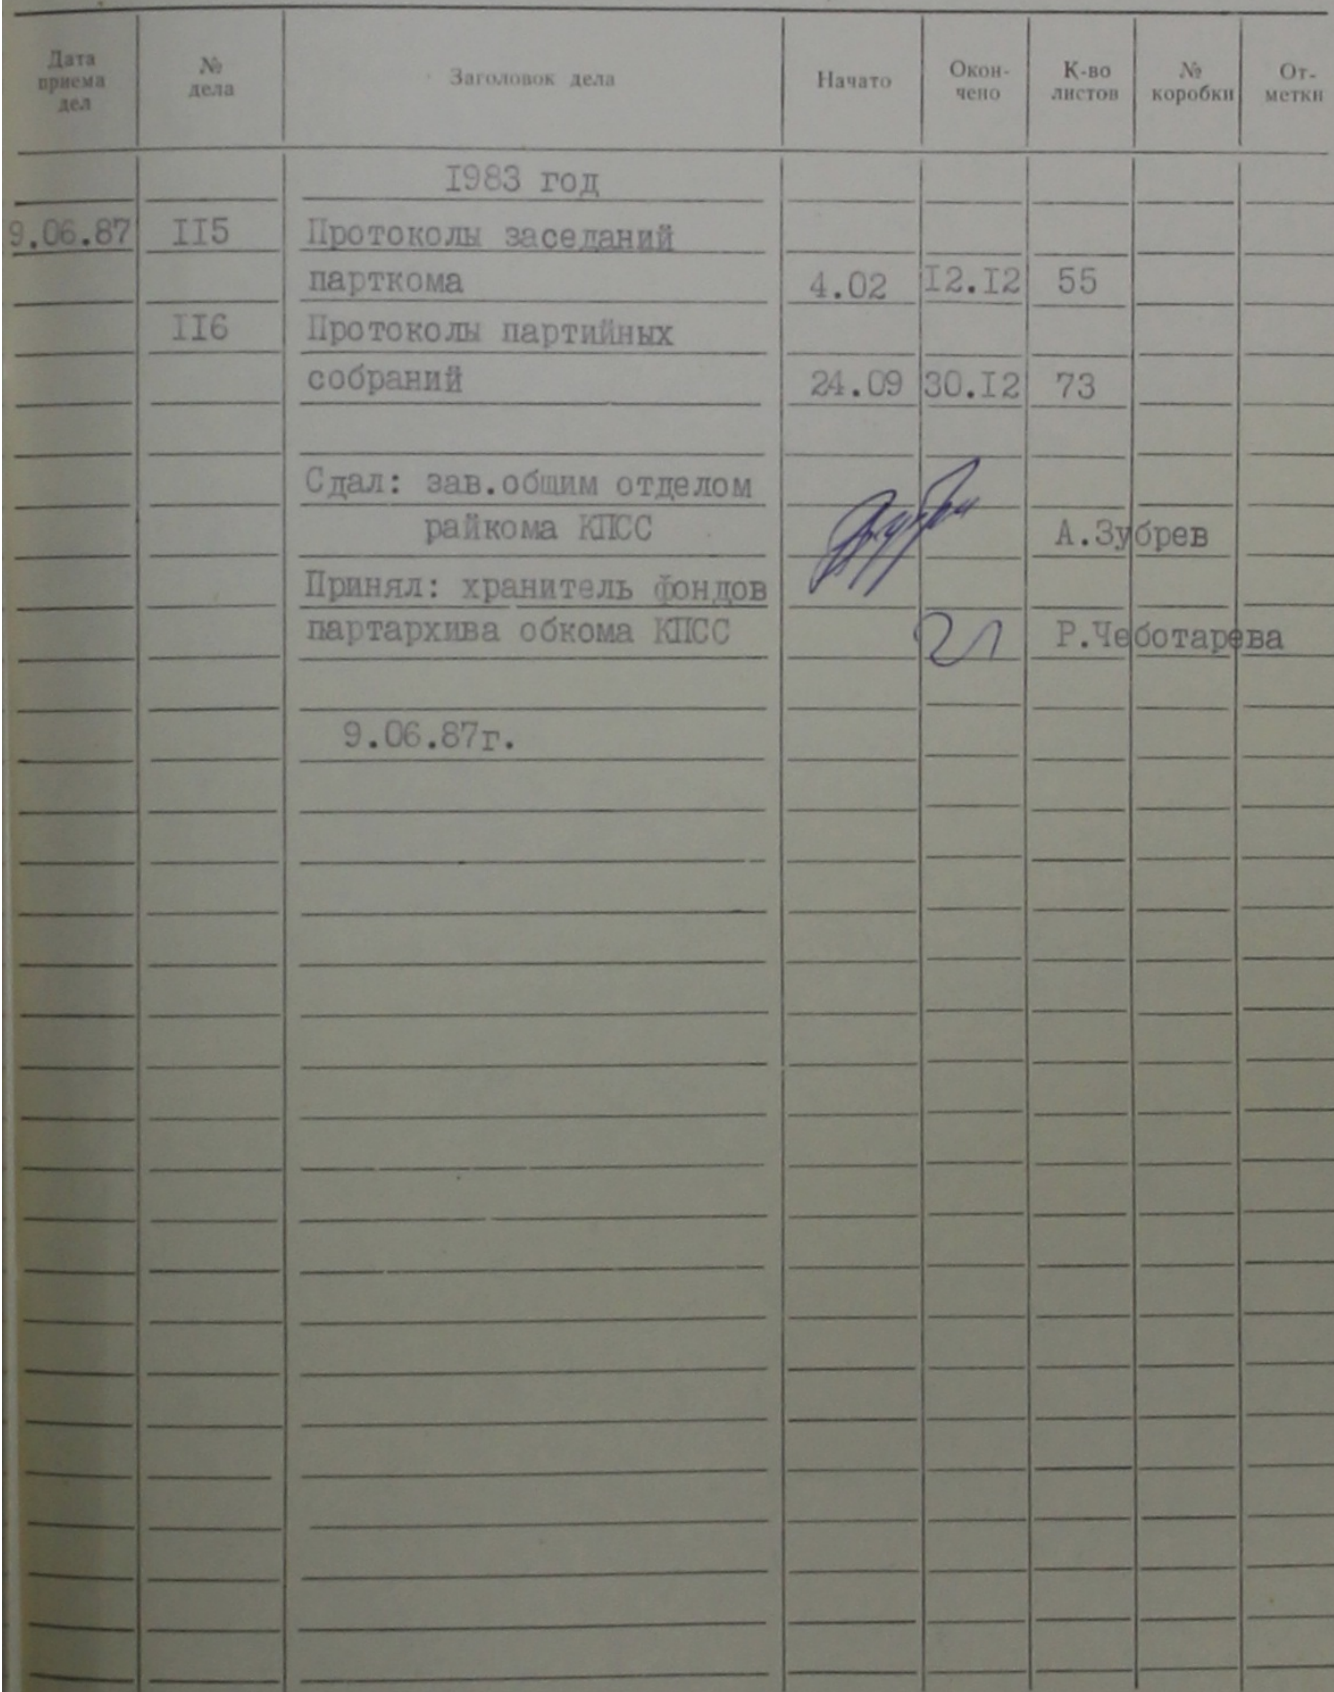 Дата приема дел № дела Заголовок дела Начато Окон- чено К-во листов № коробки От- метки
I983 год
9.06.87 II5 Протоколы заседаний
парткома 4.02 I2.I2 55
II6 Протоколы партийных
собраний 24.09 30.I2 73
Сдал: зав.общим отделом
райкома КПСС А.Зубрев
Принял: хранитель фондов
партархива обкома КПСС Р.Чеботарева
9.06.87г.